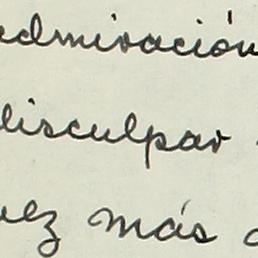 admiración
disculpar
vez más